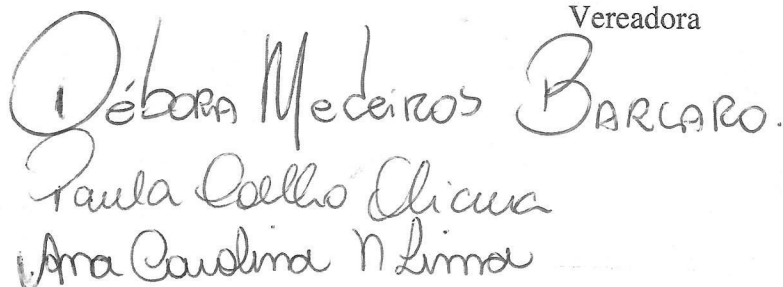 Vereadora
Débora Medeiros Barcaro.
Paula Coelho
Ana Carolina N Lima